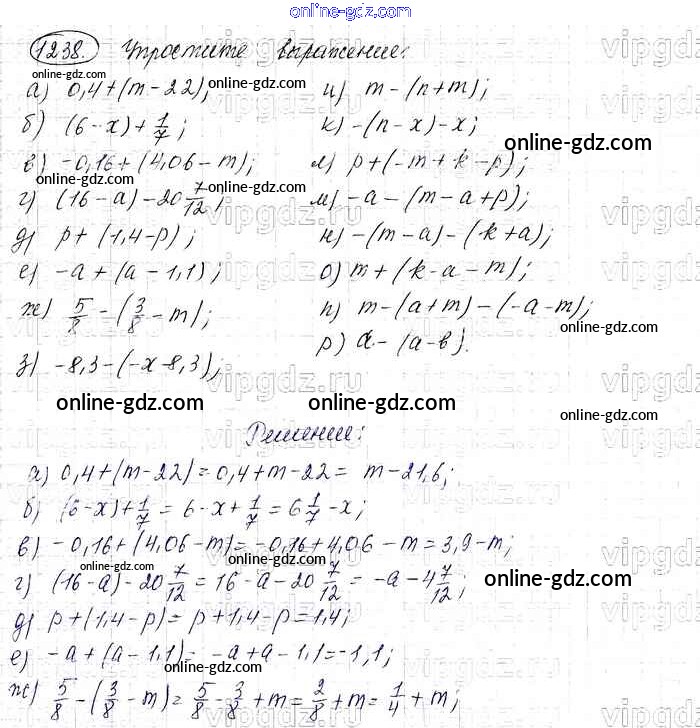 online-gdz.com
1238. Упростите выражение:
online-gdz.com
а) 0,4+(m-22); и) m-(n+m);
online-gdz.com
б) (6-x)+1/7; к) -(n-x)-x;
online-gdz.com
в) -0,16+(4,06-m); л) p+(-m+k-p);
online-gdz.com online-gdz.com
г) (16-a)-20 7/12; м) -a-(m-a+p);
д) p+(1,4-p); н) -(m-a)-(k+a);
е) -a+(a-1,1); о) m+(k-a-m);
ж) 5/8-(3/8-m); п) m-(a+m)-(-a-m);
online-gdz.com
р) a-(a-b).
з) -8,3-(-x-8,3);
online-gdz.com online-gdz.com online-gdz.com
Решение:
а) 0,4+(m-22)=0,4+m-22= m-21,6;
б) (6-x)+1/7=6-x+1/7=6 1/7-x;
в) -0,16+(4,06-m)=-0,16+4,06-m=3,9-m;
г) (16-a)-20 7/12=16-a-20 7/12=-a-4 7/12;
online-gdz.com
д) p+(1,4-p)=p+1,4-p=1,4;
е) -a+(a-1,1)= -a+a-1,1=-1,1;
online-gdz.com
ж) 5/8-(3/8-m)=5/8-3/8+m=2/8+m=1/4+m;
vipgdz.com